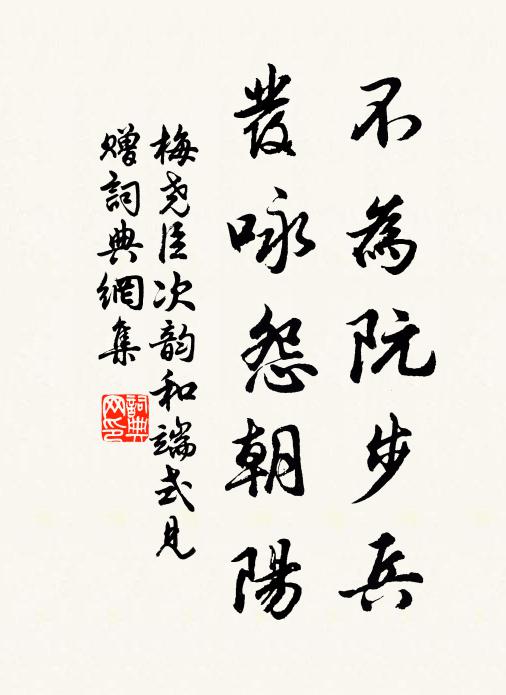 不為阮步兵
發咏怨朝陽
梅堯臣次韵和端式見
贈詞典網集
詞典
网印